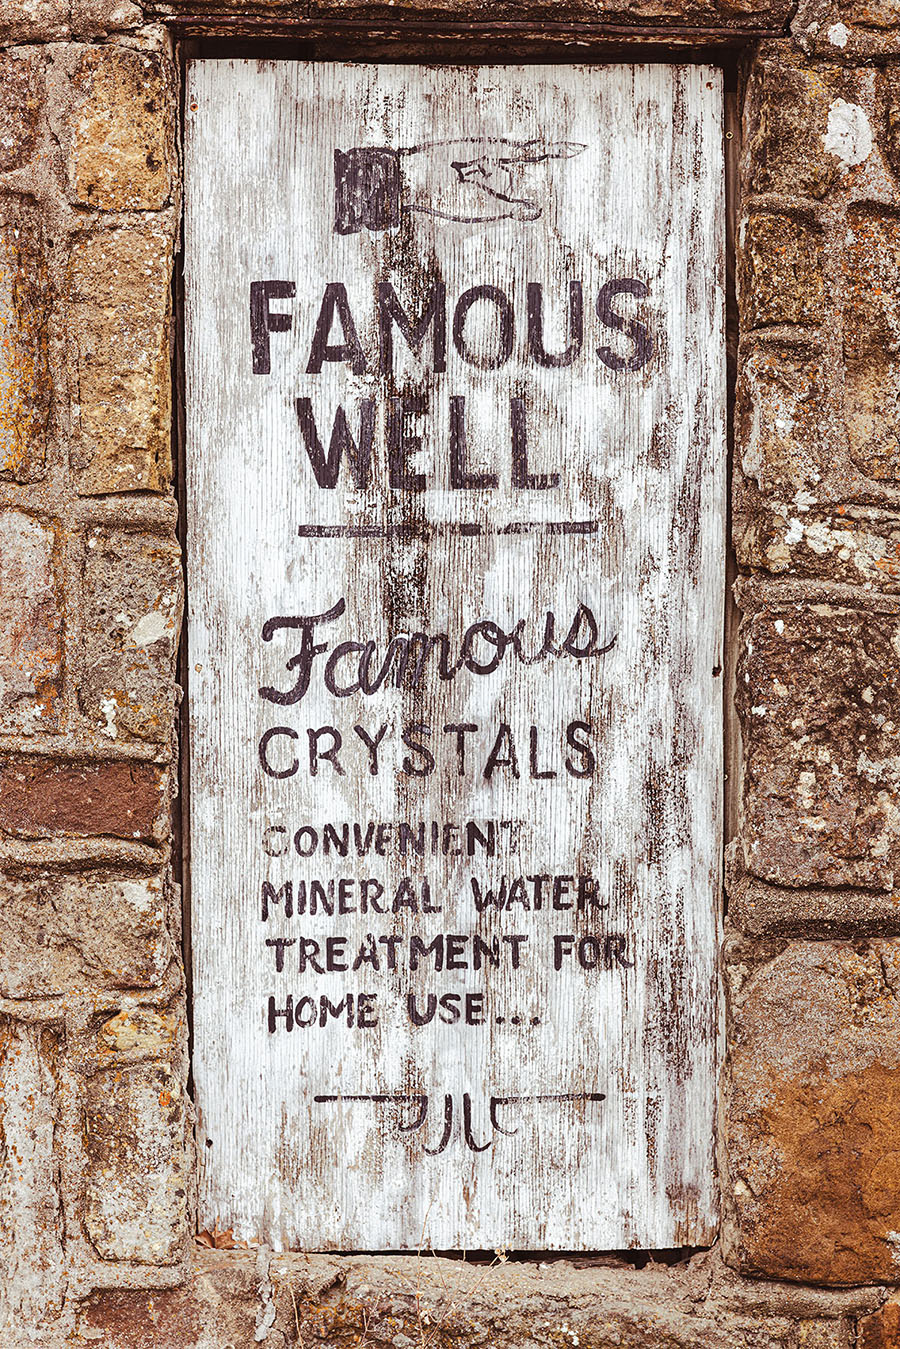 FAMOUS
WELL
Famous
CRYSTALS
CONVENIENT
MINERAL WATER
TREATMENT FOR
HOME USE...